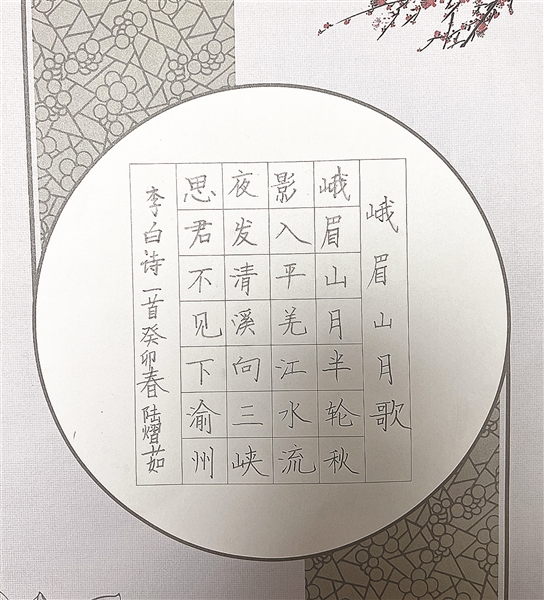 峨眉山月歌
峨眉山月半轮秋
影入平羌江水流
夜发清溪向三峡
思君不见下渝州
李白诗一首癸卯春陆熠茹